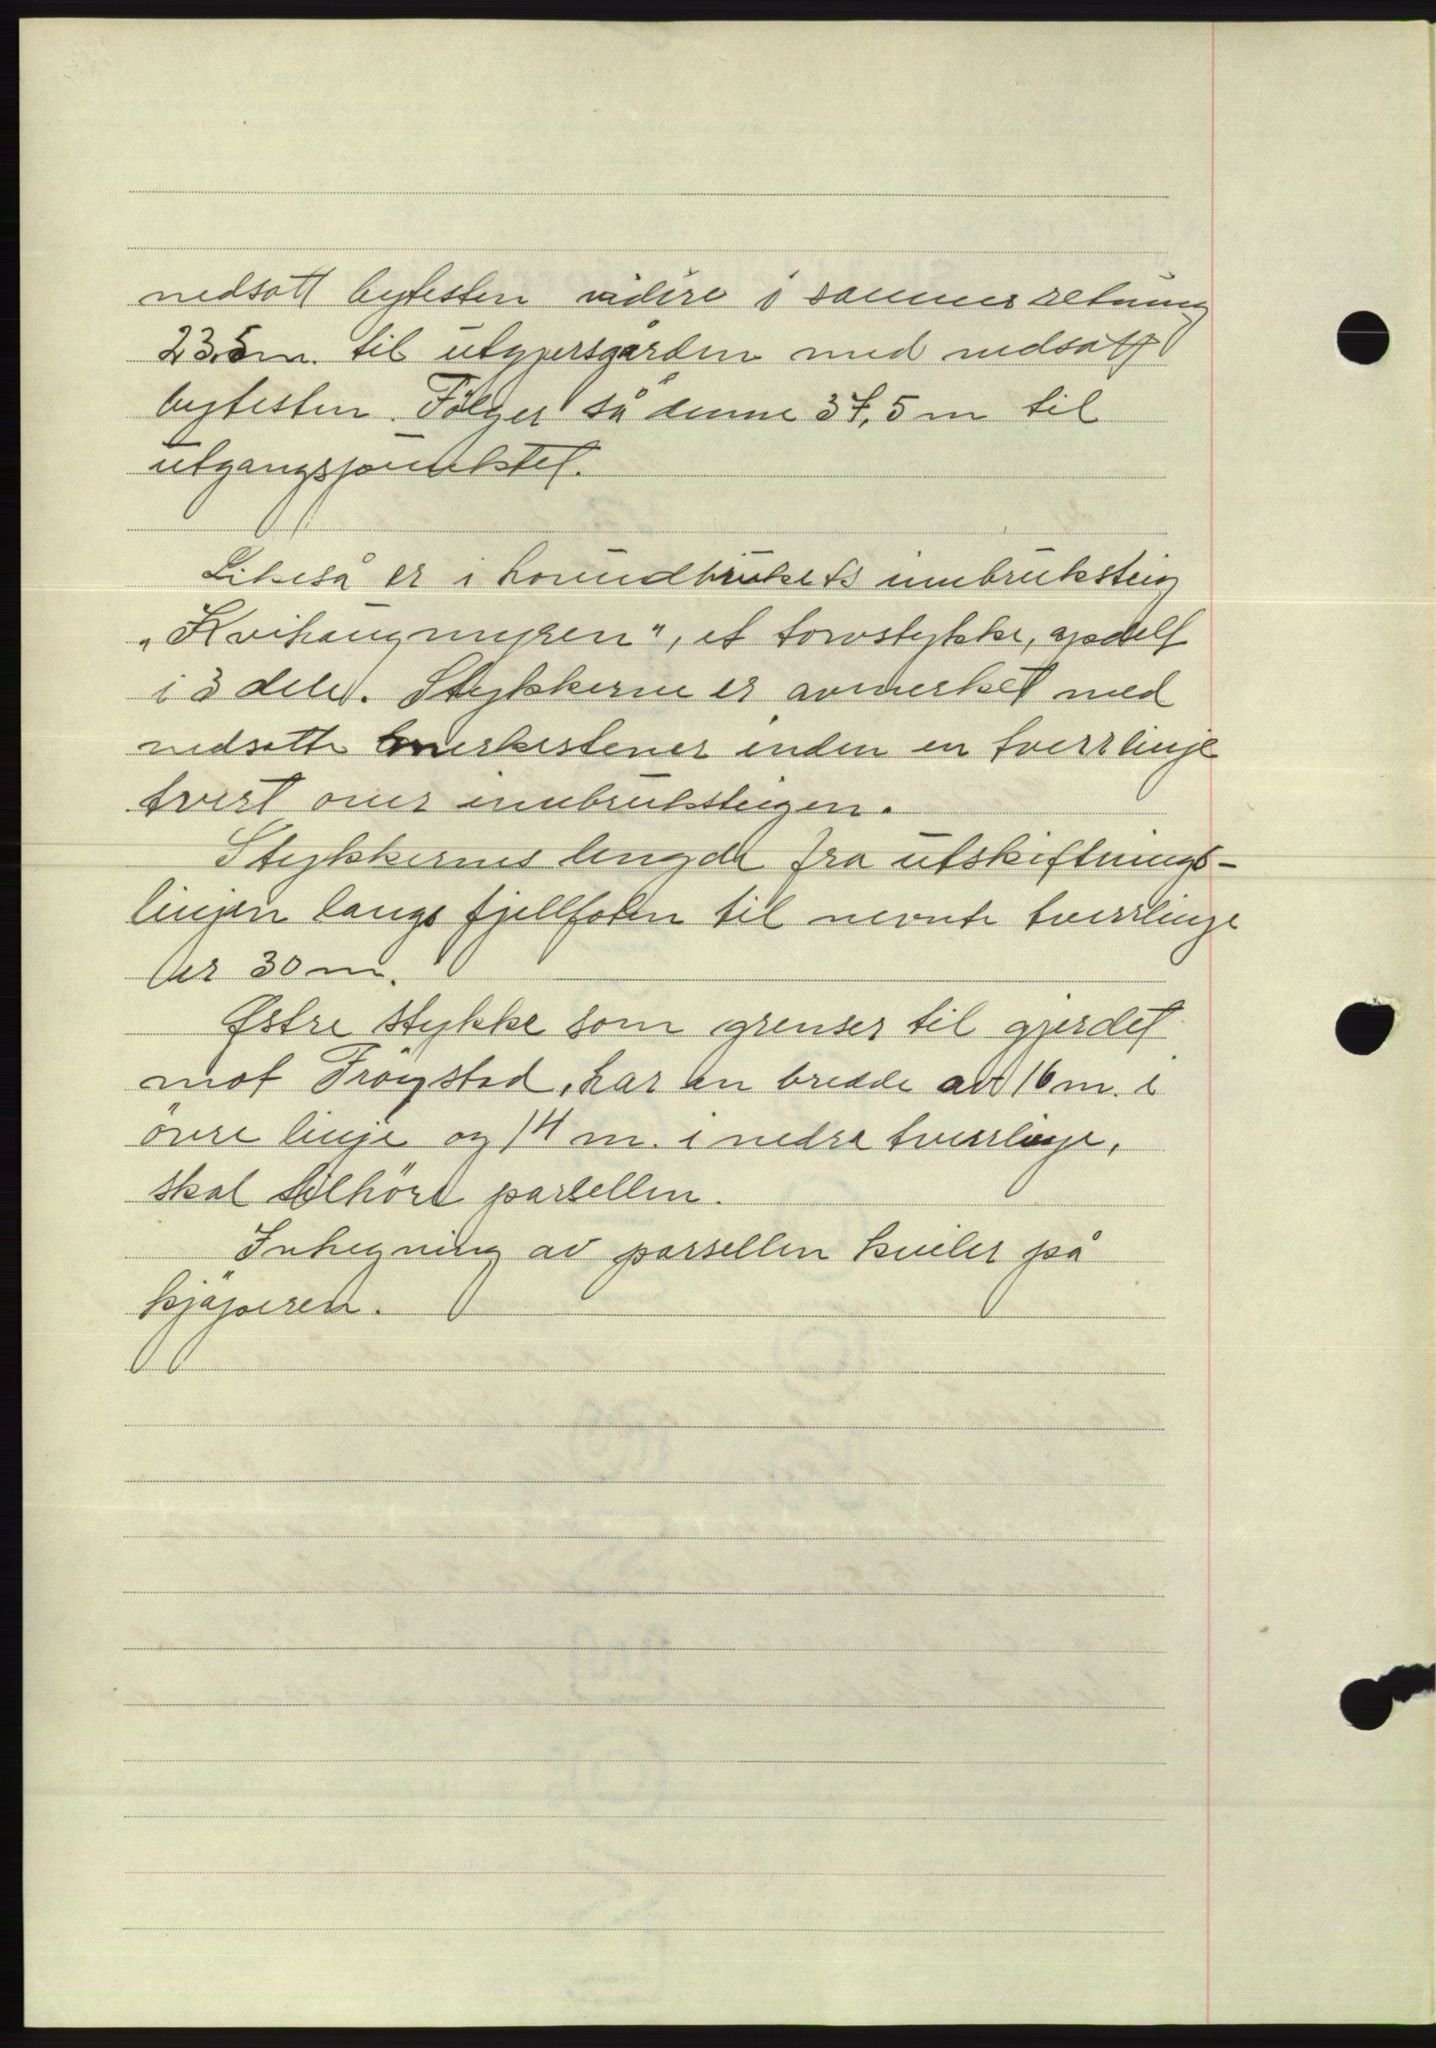 nedsatt bytesten videre i samme retning
23,5 m. til utgjersgården med nedsatt
bytesten. Følger så denne 37,5 m til
utgangspunktet.
Likeså er i hovedbrukets innbruksteig
„Kvihaugmyren", et torvstykke, opdelt
i 3 dele. Stykkerne er avmerket med
nedsatte merkestener inden en tverrlinje
tvert over innbruksteigen.
Stykkernes lengde fra utskiftnings-
linjen langs fjellfoten til nevnte tverrlinje
er 30 m.
Østre stykke som grenser til gjerdet
mot Fröystad, har en bredde av 16 m. i
övre linje og 14 m. i nedre tverrlinje,
skal tilhöre parsellen.
Inhegning av parsellen hviler på
kjöperen.